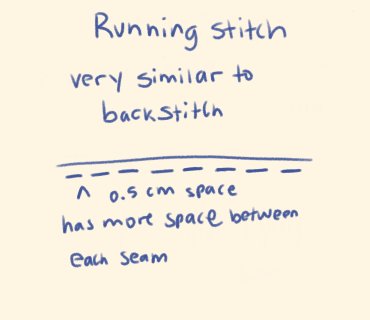 Running stitch
very similar to
backstitch
^ 0.5 cm space
has more space between
each seam